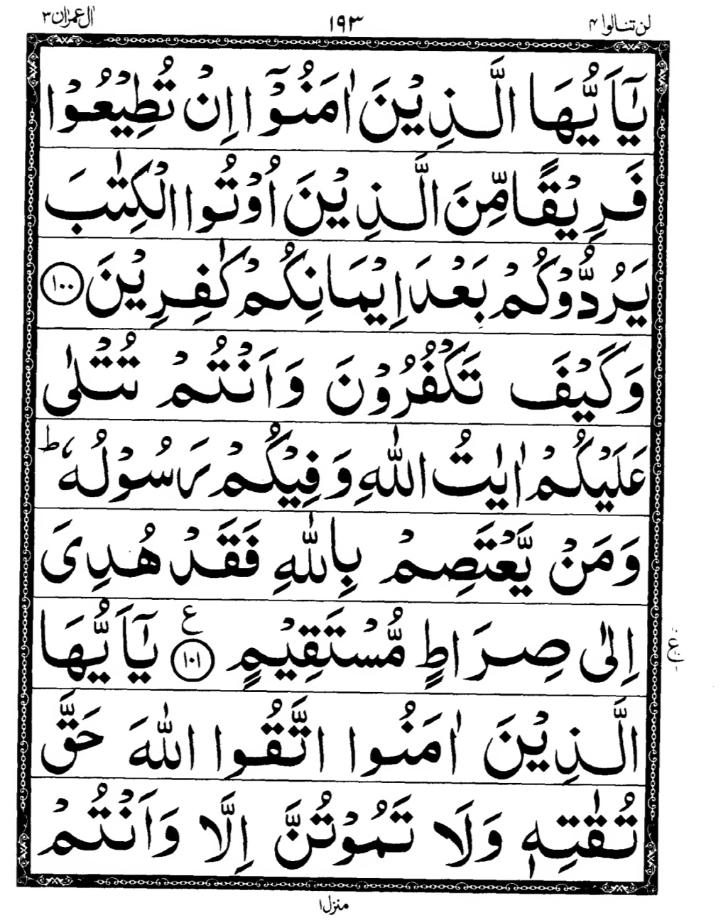 لن تنالوا ۴ ۱۹۳ اٰل عمرٰن ۳
يٰۤاَيُّهَا الَّذِيْنَ اٰمَنُوْۤا اِنْ تُطِيْعُوْا
فَرِيْقًا مِّنَ الَّذِيْنَ اُوْتُوا الْكِتٰبَ
يَرُدُّوْكُمْ بَعْدَ اِيْمَانِكُمْ كٰفِرِيْنَ ۱۰۰
وَكَيْفَ تَكْفُرُوْنَ وَاَنْتُمْ تُتْلٰى
عَلَيْكُمْ اٰيٰتُ اللّٰهِ وَفِيْكُمْ رَسُوْلُهٗ ؕ
وَمَنْ يَّعْتَصِمْ بِاللّٰهِ فَقَدْ هُدِىَ
اِلٰى صِرَاطٍ مُّسْتَقِيْمٍ ۱۰۱ ع يٰۤاَيُّهَا
الَّذِيْنَ اٰمَنُوا اتَّقُوا اللّٰهَ حَقَّ
تُقٰتِهٖ وَلَا تَمُوْتُنَّ اِلَّا وَاَنْتُمْ
منزل ۱